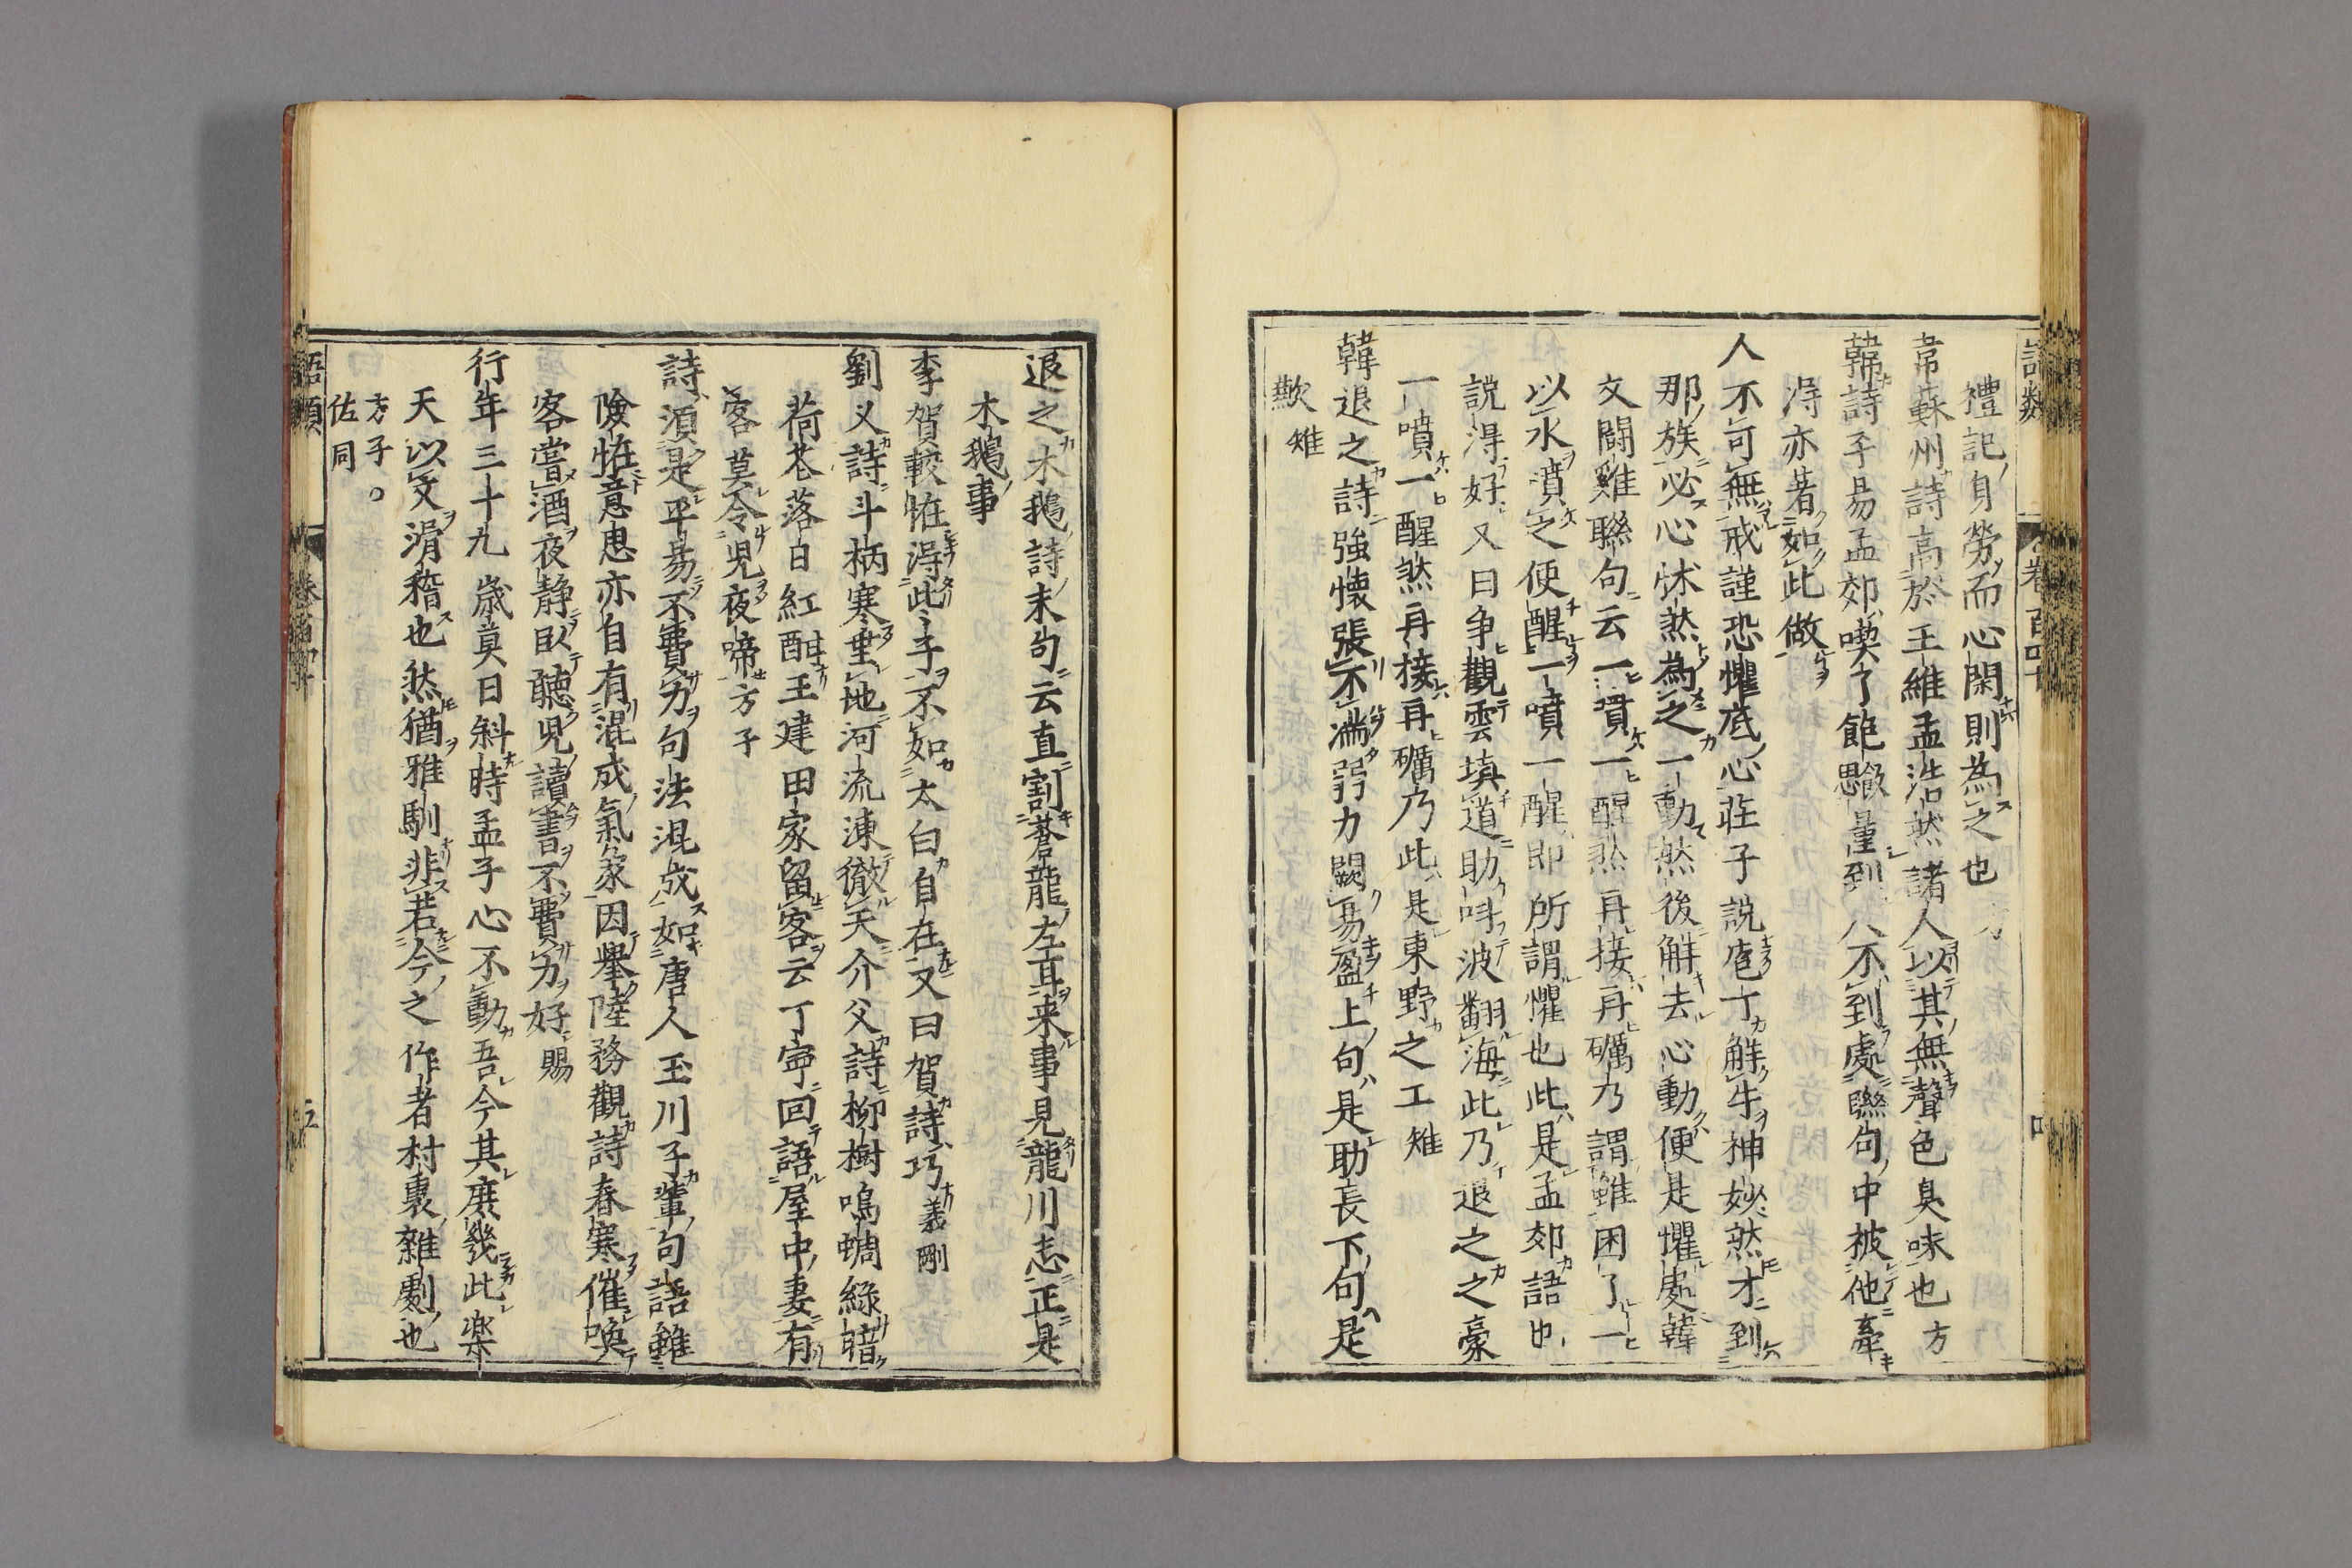 禮記身勞而心閑則為之也 方
韋蘇州詩高於王維孟浩然諸人以其無聲色臭味也方
韓詩平易孟郊喫了飽飯思量到人不到處聯句中被他牽
得亦著如此做
人不可無戒謹恐懼底心莊子說庖丁解牛神妙然才到
那族必心怵然為之一動然後解去心動便是懼處韓
文鬪雞聯句云一噴一醒然再接再礪乃謂雖困了一
以水濆之便醒一噴一醒即所謂懼也此是孟郊語也
說得好又曰争觀雲填道助叫波翻海此乃退之之豪
一噴一醒然再接再礪乃此是東野之工雉
韓退之詩強懷張不滿弱力闕易盈上句是助長下句是
歉雉
退之木鵝詩末句云直割蒼龍左耳来事見龍川志正是
木鵝事
李賀較怪得此子不如太白自在又曰賀詩巧義剛
劉乂詩斗柄寒垂地河流凍徹天介父詩柳樹鳴蜩綠暗
荷花落日紅酣王建田家留客云丁寧回語屋中妻有
客莫令兒夜啼方子
詩須是平易不費力句法混成如唐人玉川子輩句語雖
險怪意思亦自有混成氣象因舉陸務觀詩春寒催喚
客嘗酒夜静臥聽兒讀書不費力好賜
行年三十九歲莫日斜時孟子心不動吾今其庶幾此樂
天以文滑稽也然猶雅馴非若今之作者村裏雜劇也
方子。
佐同
語類
卷百四十
五